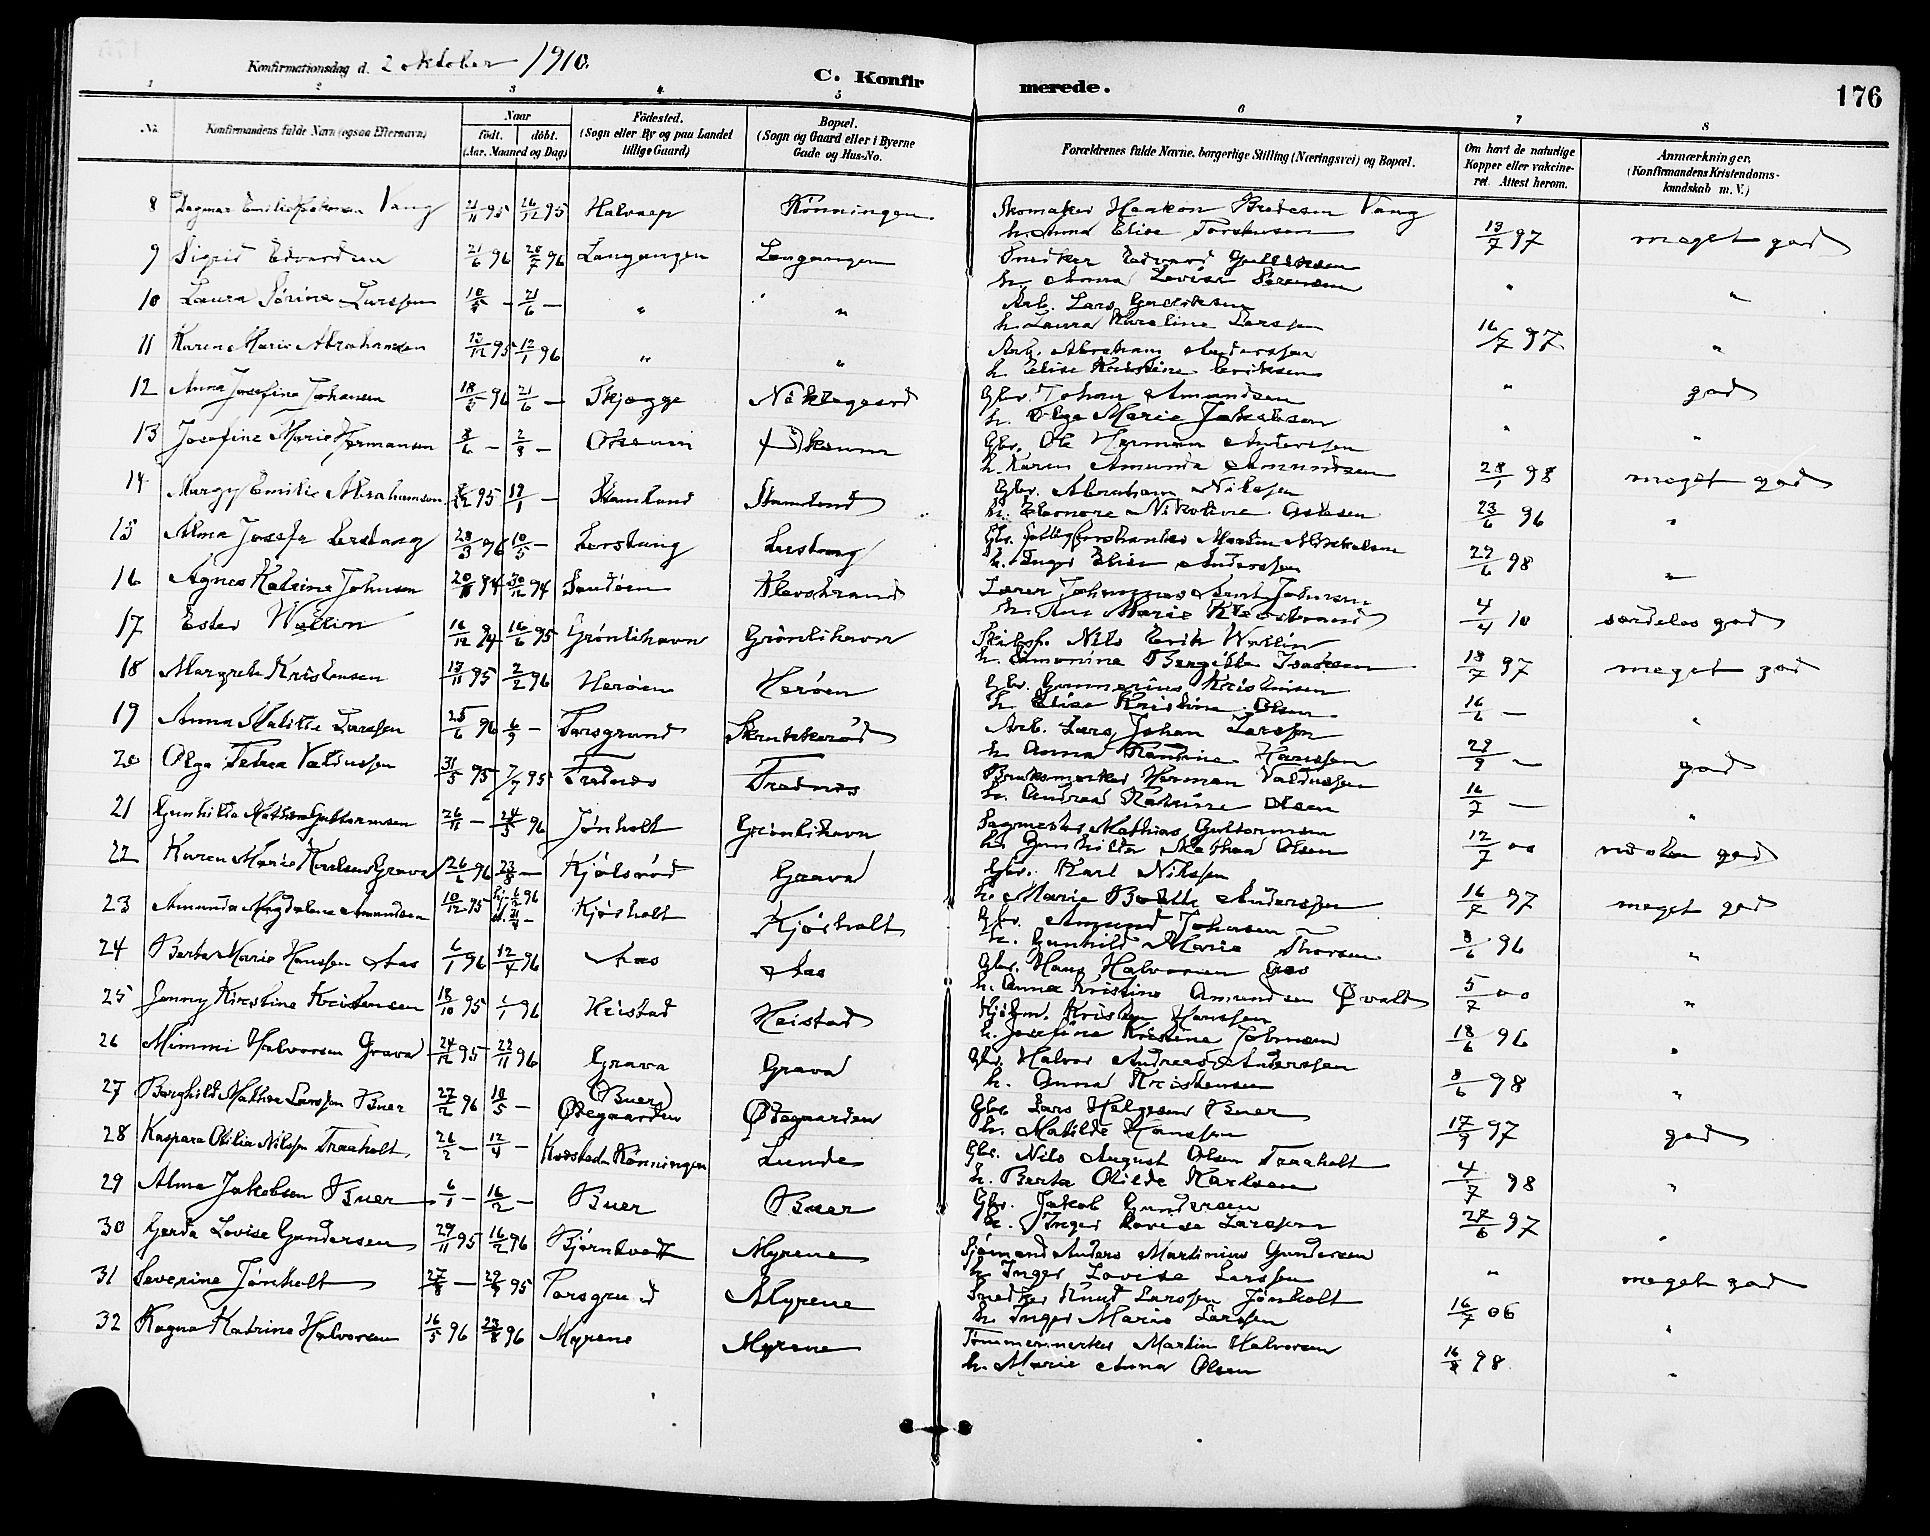 Konfirmationsdag d. 2 oktober 1910.
C. Konfirmerede.
176
1 2 3 4 5 6 7 8
No. Konfirmandens fulde Navn (ogsaa Efternavn) Naar født. døbt. (Aar, Maaned og Dag) Fødested. (Sogn eller By og paa Landet tillige Gaard) Bopæl. (Sogn og Gaard eller i Byerne Gade og Hus-No. Forældrenes fulde Navne, borgerlige Stilling (Næringsvei) og Bopæl. Om havt de naturlige Kopper eller vakcineret. Attest herom. Anmærkninger. (Konfirmandens Kristendomskundskab m. V.)
8 Dagmar Emilie Haakonsen Vang 21/11 95 26/12 95 Rønningen. Skomaker Haakon Bredesen Vang
h. Anna Elise Torstensen 13/7 97 meget god
9 Sigrid Edvardsen 21/6 96 26/7 96 Langangen Langangen Snedker Edvard
h. Anna Lovise Sørensen " "
10 Laura Sørine Larssen 10/5 - 21/6 - " " Arb. Lars
h. Laura Karoline Larssen 16/7 97
11 Karen Marie Abrahamsen 12/1 96 " " Arb. Abraham Anderssen "
h. Elise Kristine Eriksen
12 Anna Josefine Johansen 18/5 96 21/6 - Skjegge Nøklegaard Gbr. Johan Amundsen " god
h. Olga Marie Jakobsen
13 Josefine Marie Hermansen 8/6 - 2/8 - Oksum Gbr. Ole Herman Anderssen " "
h. Karen Amunda Amundsen 28/1 98 meget god
14 Margy Emilie Abrahamsen 95 19/1 - Stamland Stamland Gbr. Abraham Nilssen
h. Eleonore Nikoline 23/6 96 "
15 Alma Josefe Lerstang 28/3 96 10/5 - Lerstang Lerstang Gbr.
h. Inger Elise Anderssen 29/6 98 "
16 Agnes Katrine Johnsen 20/11 94 30/12 94 Sandøen Klevstrand Lærer
h. Ane Marie Klevstrand 4/4 10 særdeles god
17 Ester Wallin 16/12 94 16/6 95 Grønlihavn Grønlihavn Skibsf. Nils Erik Wallin
h. Simonine Bergitte Isaksen 18/7 97 meget god
18 Margrete Kristensen 13/11 95 2/2 96 Herøen Herøen Gbr. Gunnerius Kristensen
h. Elise Kristine Olsen 16/6 - "
19 Anna Malitte Larssen 25/6 96 6/9 - Porsgrund Skrukkerød Arb. Lars Johan Larssen
h. Anna Hanssen 29/9 - god
20 Olga Petrea Valdussen 31/5 95 7/7 95 Tradnes Tradnes Herman Valdussen
h. Andrea Katrine Olsen 16/7 - "
21 Gunhilda Mathea Guttormsen 26/11 - 24/5 96 Jønholt Grønlihavn Sagmester Mathias Guttormsen
h. Gunhilda Mathea Olsen 12/7 00 god
22 Karen Marie Karlsen Grava 26/6 96 23/8 - Kjølsrød Grava Gbr. Karl Nilssen
h. Marie Anderssen 16/7 97 meget god
23 Amanda Magdalene Amundsen 10/12 95 Kjøsholt Kjøsholt Gbr. Amund Johnsen
h. Gunhild Marie Thorsen 8/6 96 "
24 Berta Marie Hanssen Aas 6/1 96 12/4 96 Aas Aas Gbr. Hans Halvorsen Aas
h. Anna Kristine Amundsen Øvald 5/7 00 "
25 Jenny Kirstine Kristensen 18/10 95 1/1 96 Heistad Heistad Kristen Hanssen
h. Josefine Kristine Johnsen 18/6 96 "
26 Mimmi Halvorsen Grava 24/12 95 22/11 96 Grava Grava Gbr. Halvor Andreas Anderssen
h. Anna Kristensen 8/6 98 "
27 Borghild Mathea Larssen Buer 27/2 96 10/5 - (Buer) Ødegaarden Ødegaarden Gbr. Lars Helgesen Buer
h. Matilde Hanssen 17/9 97 god
28 Kaspara Otilia Nilssen Traaholt 26/2 - 12/4 - Rønningen Lunde Gbr. Nils August Olsen Traaholt
h. Berta Otilde Karlsen 4/7 98 "
29 Alma Jakobsen Buer 6/1 - 16/2 - Buer Buer Gbr. Jakob Gundersen
h. Inger Lovise Larssen 27/6 97 "
30 Gerda Lovise Gundersen 29/11 95 16/2 96 Bjørntvedt Myrene Sjømand Anders Martinius Gundersen
h. Inger Lovise Larssen " meget god
31 Severine Jønholt 27/8 - 29/9 95 Porsgrund Myrene Snedker Knud Larssen Jønholt
h. Inger Marie Larssen 16/7 06 "
32 Ragna Katrine Halvorsen 16/5 96 23/8 96 Myrene Myrene Tømmermerker Martin Halvorsen
h. Marie Anna Olsen 16/8 98 "